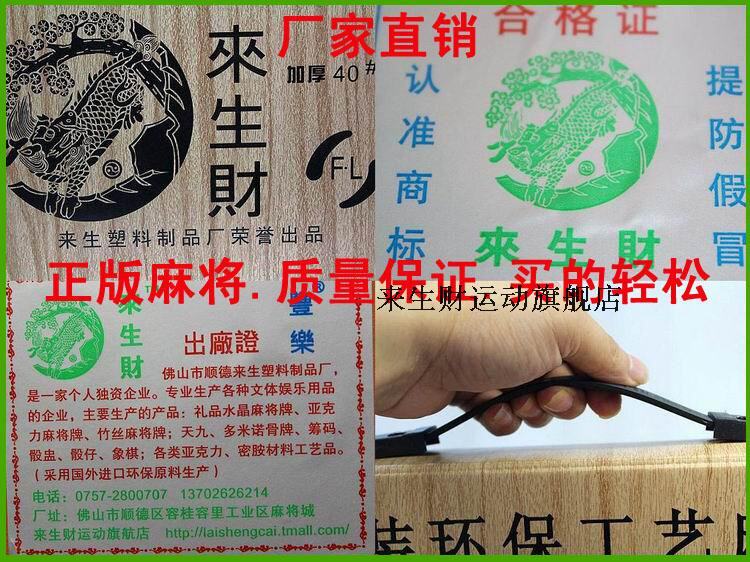 厂家直销
正版麻将.质量保证.买的轻松
來生財
加厚 40#
F·L
来生塑料制品厂荣誉出品
合格证
认准商标
提防假冒
來生財
來生財
TM
壹樂®
出廠證
佛山市顺德来生塑料制品厂，
是一家个人独资企业。专业生产各种文体娱乐用品
的企业，主要生产的产品：礼品水晶麻将牌、亚克
力麻将牌、竹丝麻将牌；天九、多米诺骨牌、筹码、
骰盅、骰仔、象棋；各类亚克力、密胺材料工艺品。
（采用国外进口环保原料生产）
电话：0757-2800707 13702626214
厂址：佛山市顺德区容桂容里工业区麻将城
来生财运动旗舰店 http://laishengcai.tmall.com/
来生财运动旗舰店
装环保工艺